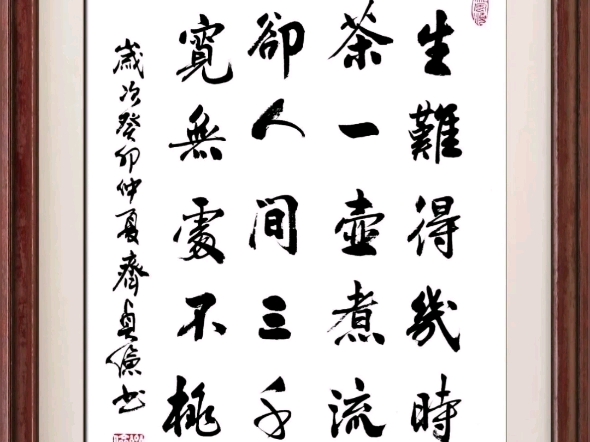 生難得幾時
茶一壺煮流
卻人間三千
寬無處不桃
歲次癸卯仲夏齊貞儉书